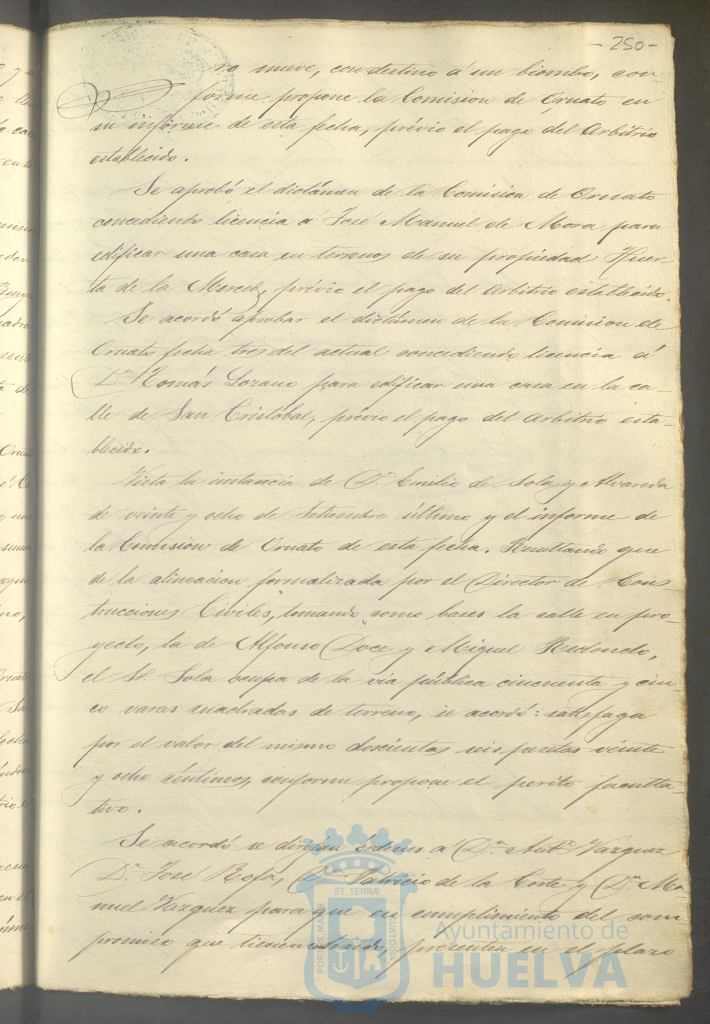 - 250 -
ro nueve, con destino á un biombo, con-
forme propone la Comision de Ornato en
su informe de esta fecha, prévio el pago del arbitrio
establecido.
Se aprobó el dictámen de la Comision de Ornato
concediendo licencia á José Manuel de Mora para
edificar una casa en terrenos de su propiedad Huer-
ta de la Merced, prévio el pago del arbitrio establecido.
Se acordó aprobar el dictámen de la Comision de
Ornato fecha tres del actual concediendo licencia á
Dn Tomás Lozano para edificar una casa en la ca-
lle de San Cristóbal, prévio el pago del arbitrio esta-
blecido.
Vista la instancia de Dn Emilio de Sola y Alvareda
de veinte y ocho de Setiembre último y el informe de
la Comision de Ornato de esta fecha. Resultando que
de la alineacion formalizada por el Director de Cons-
trucciones Civiles, tomando como bases la calle en pro-
yecto, la de Alfonso Doce y Miguel Redondo,
el Sr. Sola ocupa de la via pública cincuenta y cin-
co varas cuadradas de terreno, se acordó: satisfaga
por el valor del mismo doscientas seis pesetas veinte
y ocho céntimos, conforme propone el perito faculta-
tivo.
Se acordó se dirijan órdenes a Dn Antº Vazquez
Dn José Rofa, Dn Patricio de la Corte y Dn Ma-
nuel Vazquez para que en cumplimiento del com-
promiso que tienen contraido, presenten en el plazo
PORTUS MARIS ET TERRÆ CUSTODIA
Ayuntamiento de
HUELVA